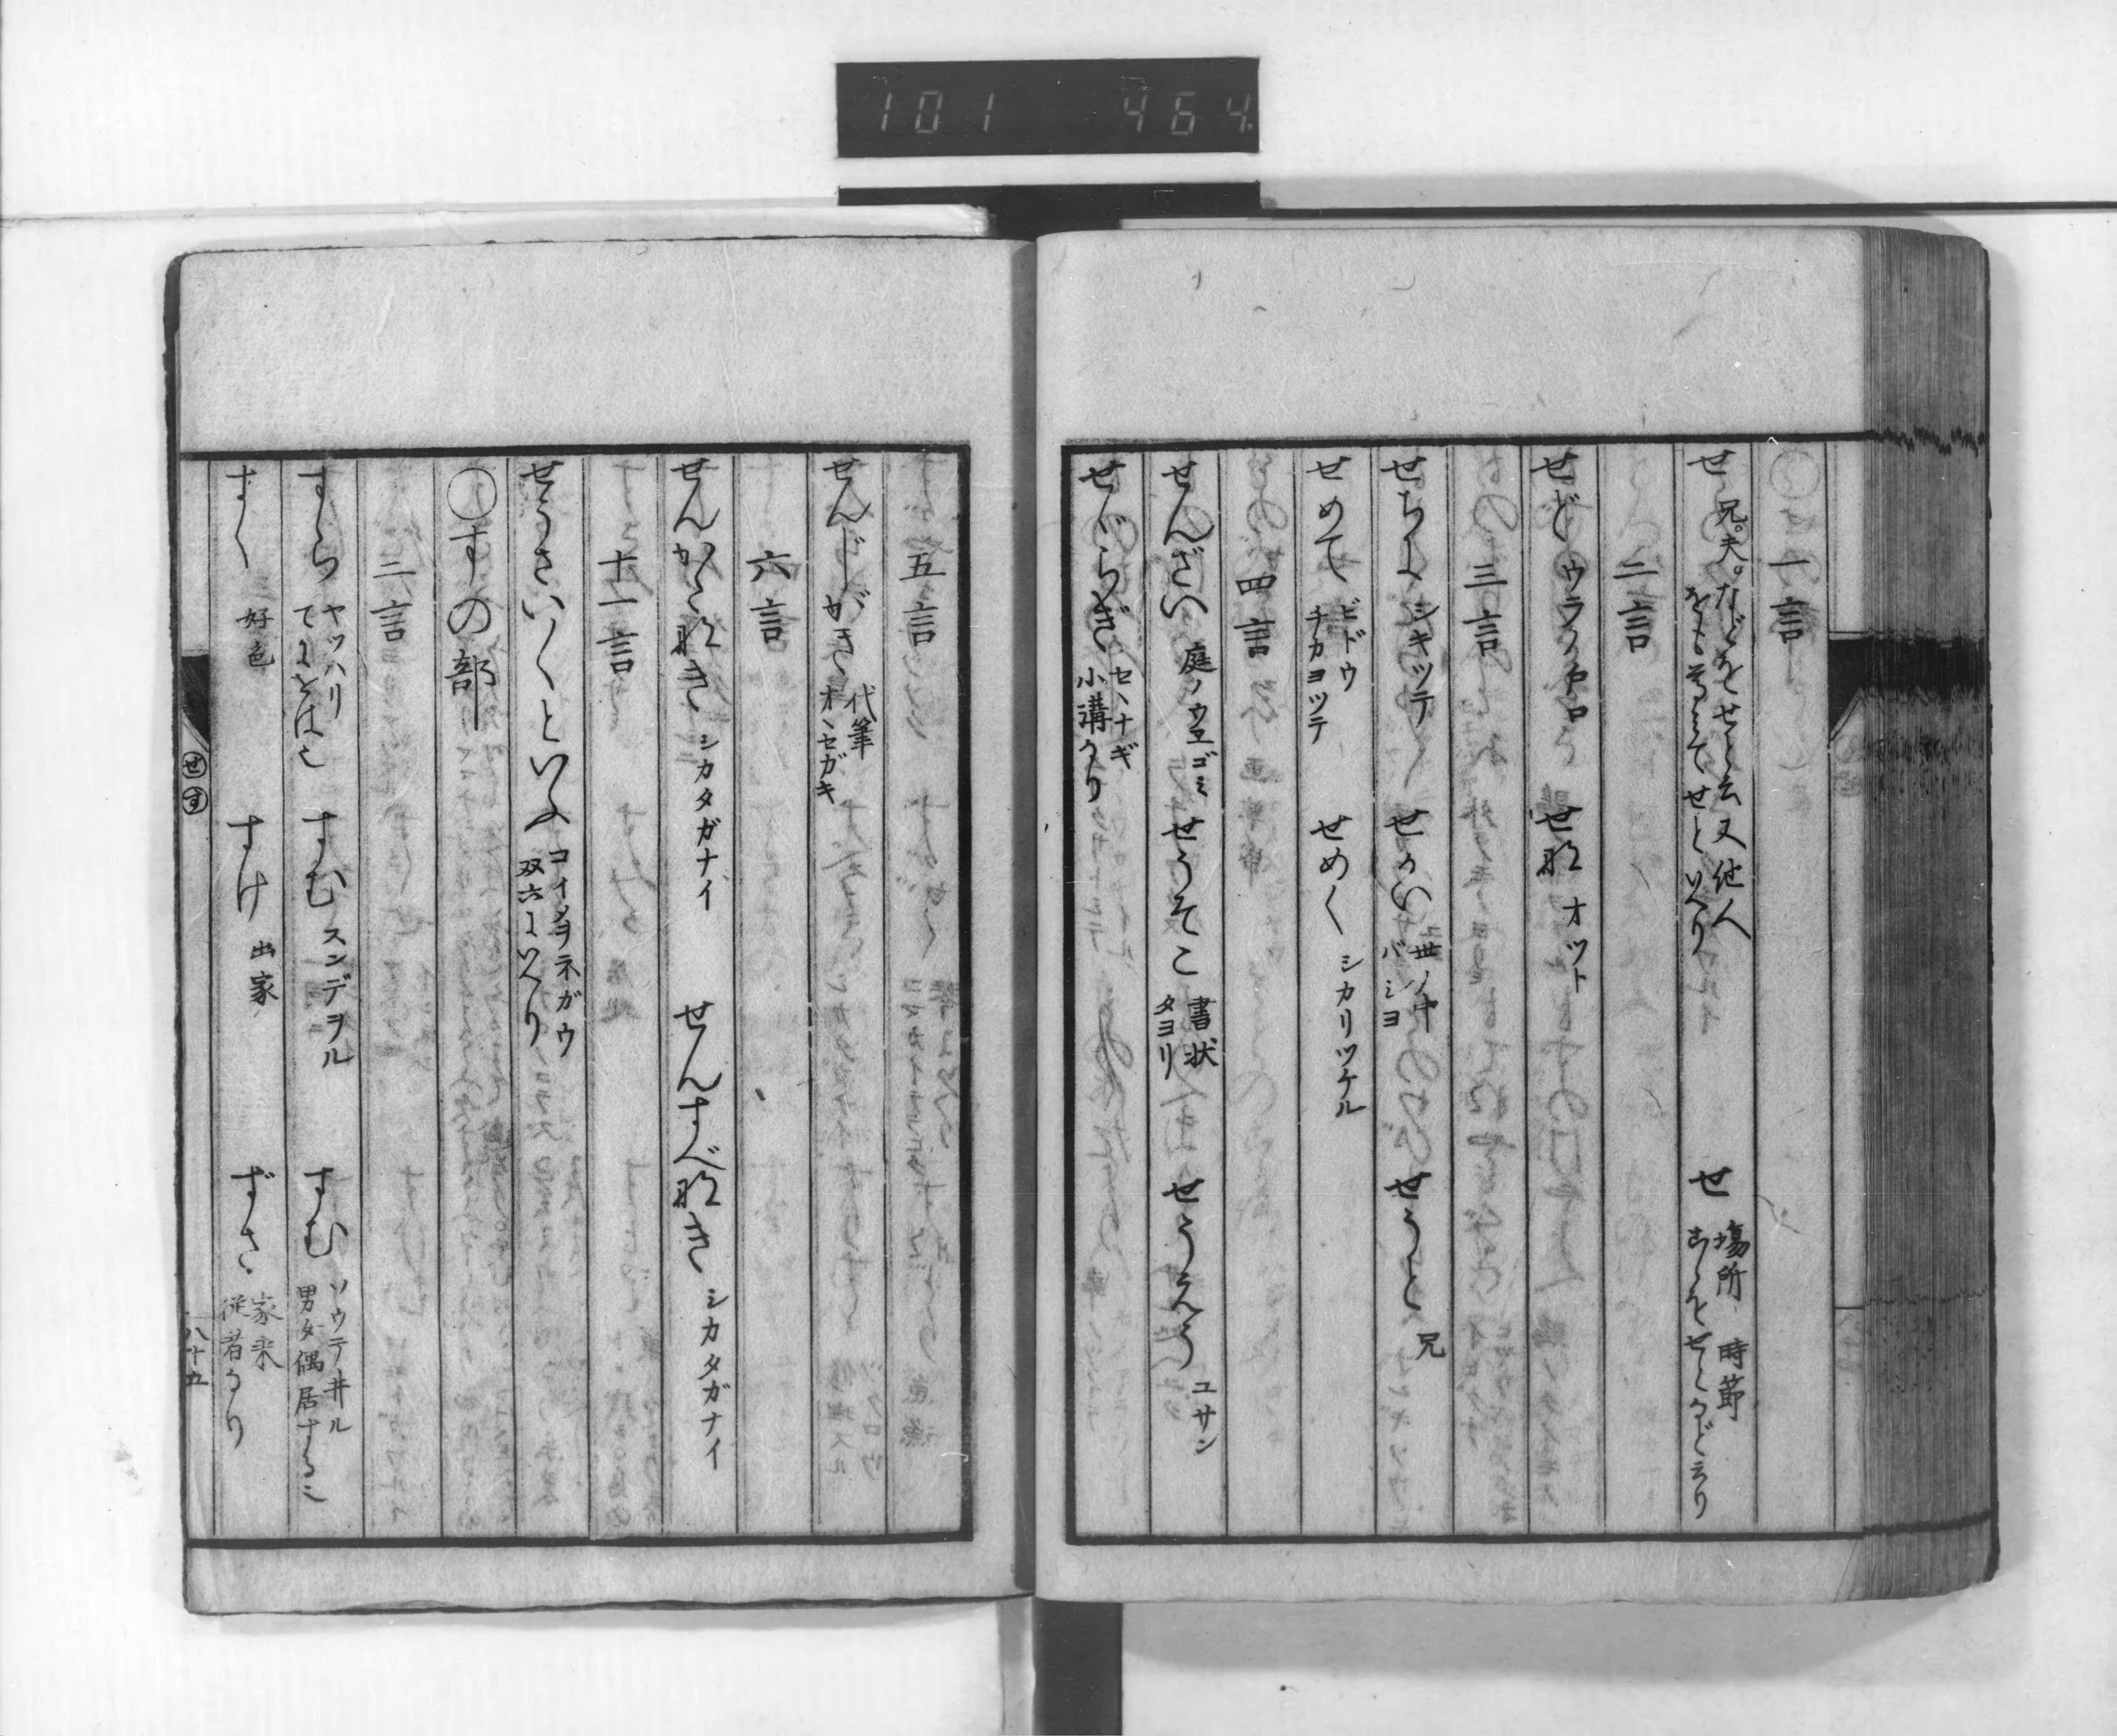 101 464
一言
せ 兄。夫。などをせと云又他人
をもしたしみてせといへり
せ 場所 時節
あふせをせなど云り
二言
せど ウラノ戸口
せな オツト
三言
せちに シキツテ
せかい 世ノ中
バシヨ
せうと 兄
せめて ヒドウ
チカヨツテ
せめく シカリツケル
四言
せんざい 庭ノウヱゴミ
せうそこ 書状
タヨリ
せうえう ユサン
せゞらぎ セヽナギ
小溝なり
五言
せんじがき 代筆
オヽセガキ
六言
せんかたなき シカタガナイ
せんすべなき シカタガナイ
十一言
せうさい〳〵といふ コイメヲネガウ
双六にいへり
○すの部
二言
すら ヤツハリ
てにをは也
すむ スンデヲル
すむ ソウテ井ル
男女偶居する也
すく 好色
すけ 出家
ずさ 家来
従者なり
せ す
八十五